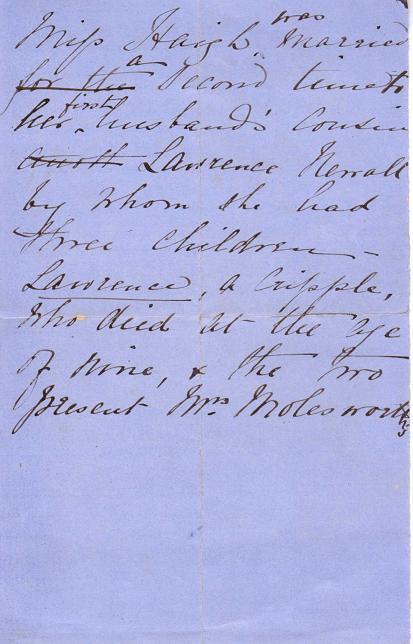 Miss Haigh was married
for the a second time to
her first husband's cousin
anoth Lawrence Newall
by whom she had
three children –
Lawrence, a cripple,
who died at the age
of nine, & the two
present Mrs Molesworths